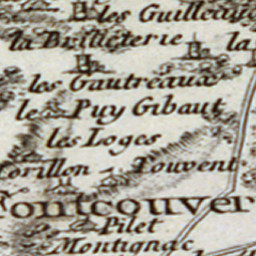 les Guilleau
la Brilleterie la
les Gautreaux
le Puy Gibaut
les Loges
Corillon Touvent
Fontcouver
Pilet
Montignac